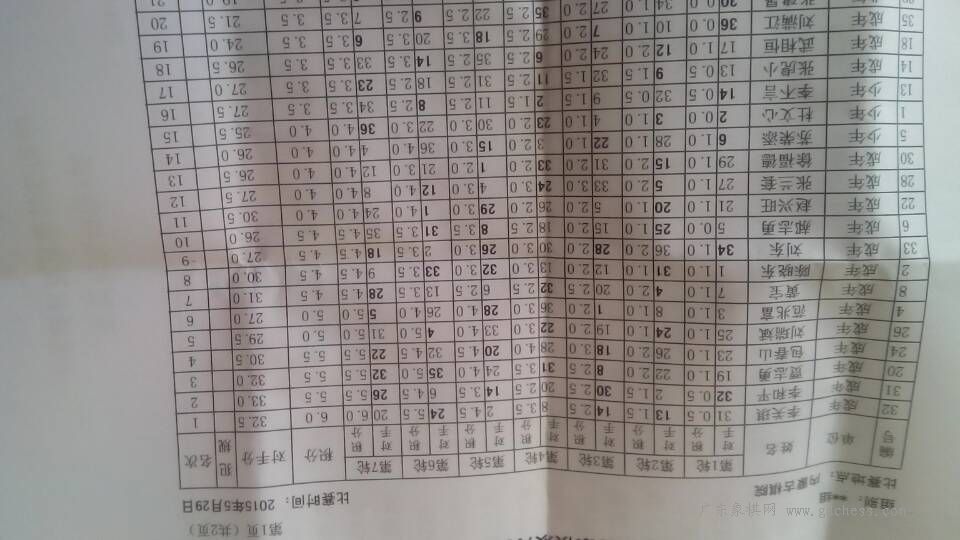 第1页（共2页）
组别：**组
比赛地点：内蒙古棋院 比赛时间：2015年5月29日
编号 单位 姓名 第1轮 第2轮 第3轮 第4轮 第5轮 第6轮 第7轮 积分 对手分 犯规 名次
对手 积分 对手 积分 对手 积分 对手 积分 对手 积分 对手 积分 对手 积分
32 成年 李关琪 31 0.5 13 1.5 14 2.5 8 3.5 2 4.5 24 5.5 20 6.0 6.0 32.5 1
31 成年 李和平 32 0.5 2 1.5 30 2.5 20 2.5 14 3.5 6 4.5 26 5.5 5.5 33.0 2
20 成年 贾志勇 19 1.0 22 2.0 8 2.5 31 3.5 24 4.0 35 5.0 32 5.5 5.5 32.0 3
24 成年 包春山 23 1.0 26 2.0 18 3.0 28 4.0 20 4.5 32 4.5 22 5.5 5.5 30.5 4
26 成年 刘瑞斌 25 1.0 24 1.0 19 2.0 22 3.0 33 4.0 4 5.0 31 5.0 5.0 29.5 5
4 成年 范兆富 3 1.0 8 1.0 1 2.0 36 3.0 28 4.0 26 4.0 5 5.0 5.0 27.0 6
8 成年 黄宝 7 1.0 4 2.0 20 2.5 32 2.5 6 2.5 13 3.5 28 4.5 4.5 31.0 7
2 成年 陈晓东 1 1.0 31 1.0 12 2.0 13 2.5 32 3.0 33 3.5 9 4.5 4.5 30.0 8
33 成年 刘东 34 1.0 36 2.0 28 2.0 30 3.0 26 3.0 2 3.5 18 4.5 4.5 27.0 9
6 成年 郝志勇 5 0.0 25 1.0 15 2.0 18 2.5 8 3.5 31 3.5 35 4.5 4.5 26.0 10
22 成年 赵兴旺 21 1.0 20 1.0 5 2.0 26 2.0 29 3.0 1 4.0 24 4.0 4.0 30.5 11
28 成年 张兰套 27 1.0 5 2.0 33 2.0 24 3.0 4 3.0 12 4.0 8 4.0 4.0 27.5 12
30 成年 徐福德 29 1.0 15 2.0 31 2.0 33 2.0 1 2.0 21 3.0 12 4.0 4.0 26.5 13
5 少年 苏荣添 6 1.0 28 1.0 22 1.0 3 2.0 15 3.0 36 4.0 4 4.0 4.0 26.0 14
1 少年 杜文心 2 0.0 3 1.0 4 1.0 23 2.0 30 3.0 22 3.0 36 4.0 4.0 25.5 15
13 少年 李不言 14 0.5 32 0.5 9 1.5 2 1.5 11 2.5 8 2.5 34 3.5 3.5 27.5 16
14 成年 张虎小 13 0.5 9 1.5 32 1.5 11 2.5 31 2.5 18 2.5 23 3.5 3.5 27.0 17
18 成年 武相恒 17 1.0 12 2.0 24 2.0 6 2.5 35 2.5 14 3.5 33 3.5 3.5 26.5 18
35 成年 刘满江 36 0.0 10 1.0 7 2.0 29 2.5 18 3.5 20 3.5 6 3.5 3.5 24.0 19
30 0.0 34 1.0 27 2.0 35 2.5 22 2.5 9 2.5 7 3.5 3.5 21.5 20
21
广东象棋网 www.gdchess.com